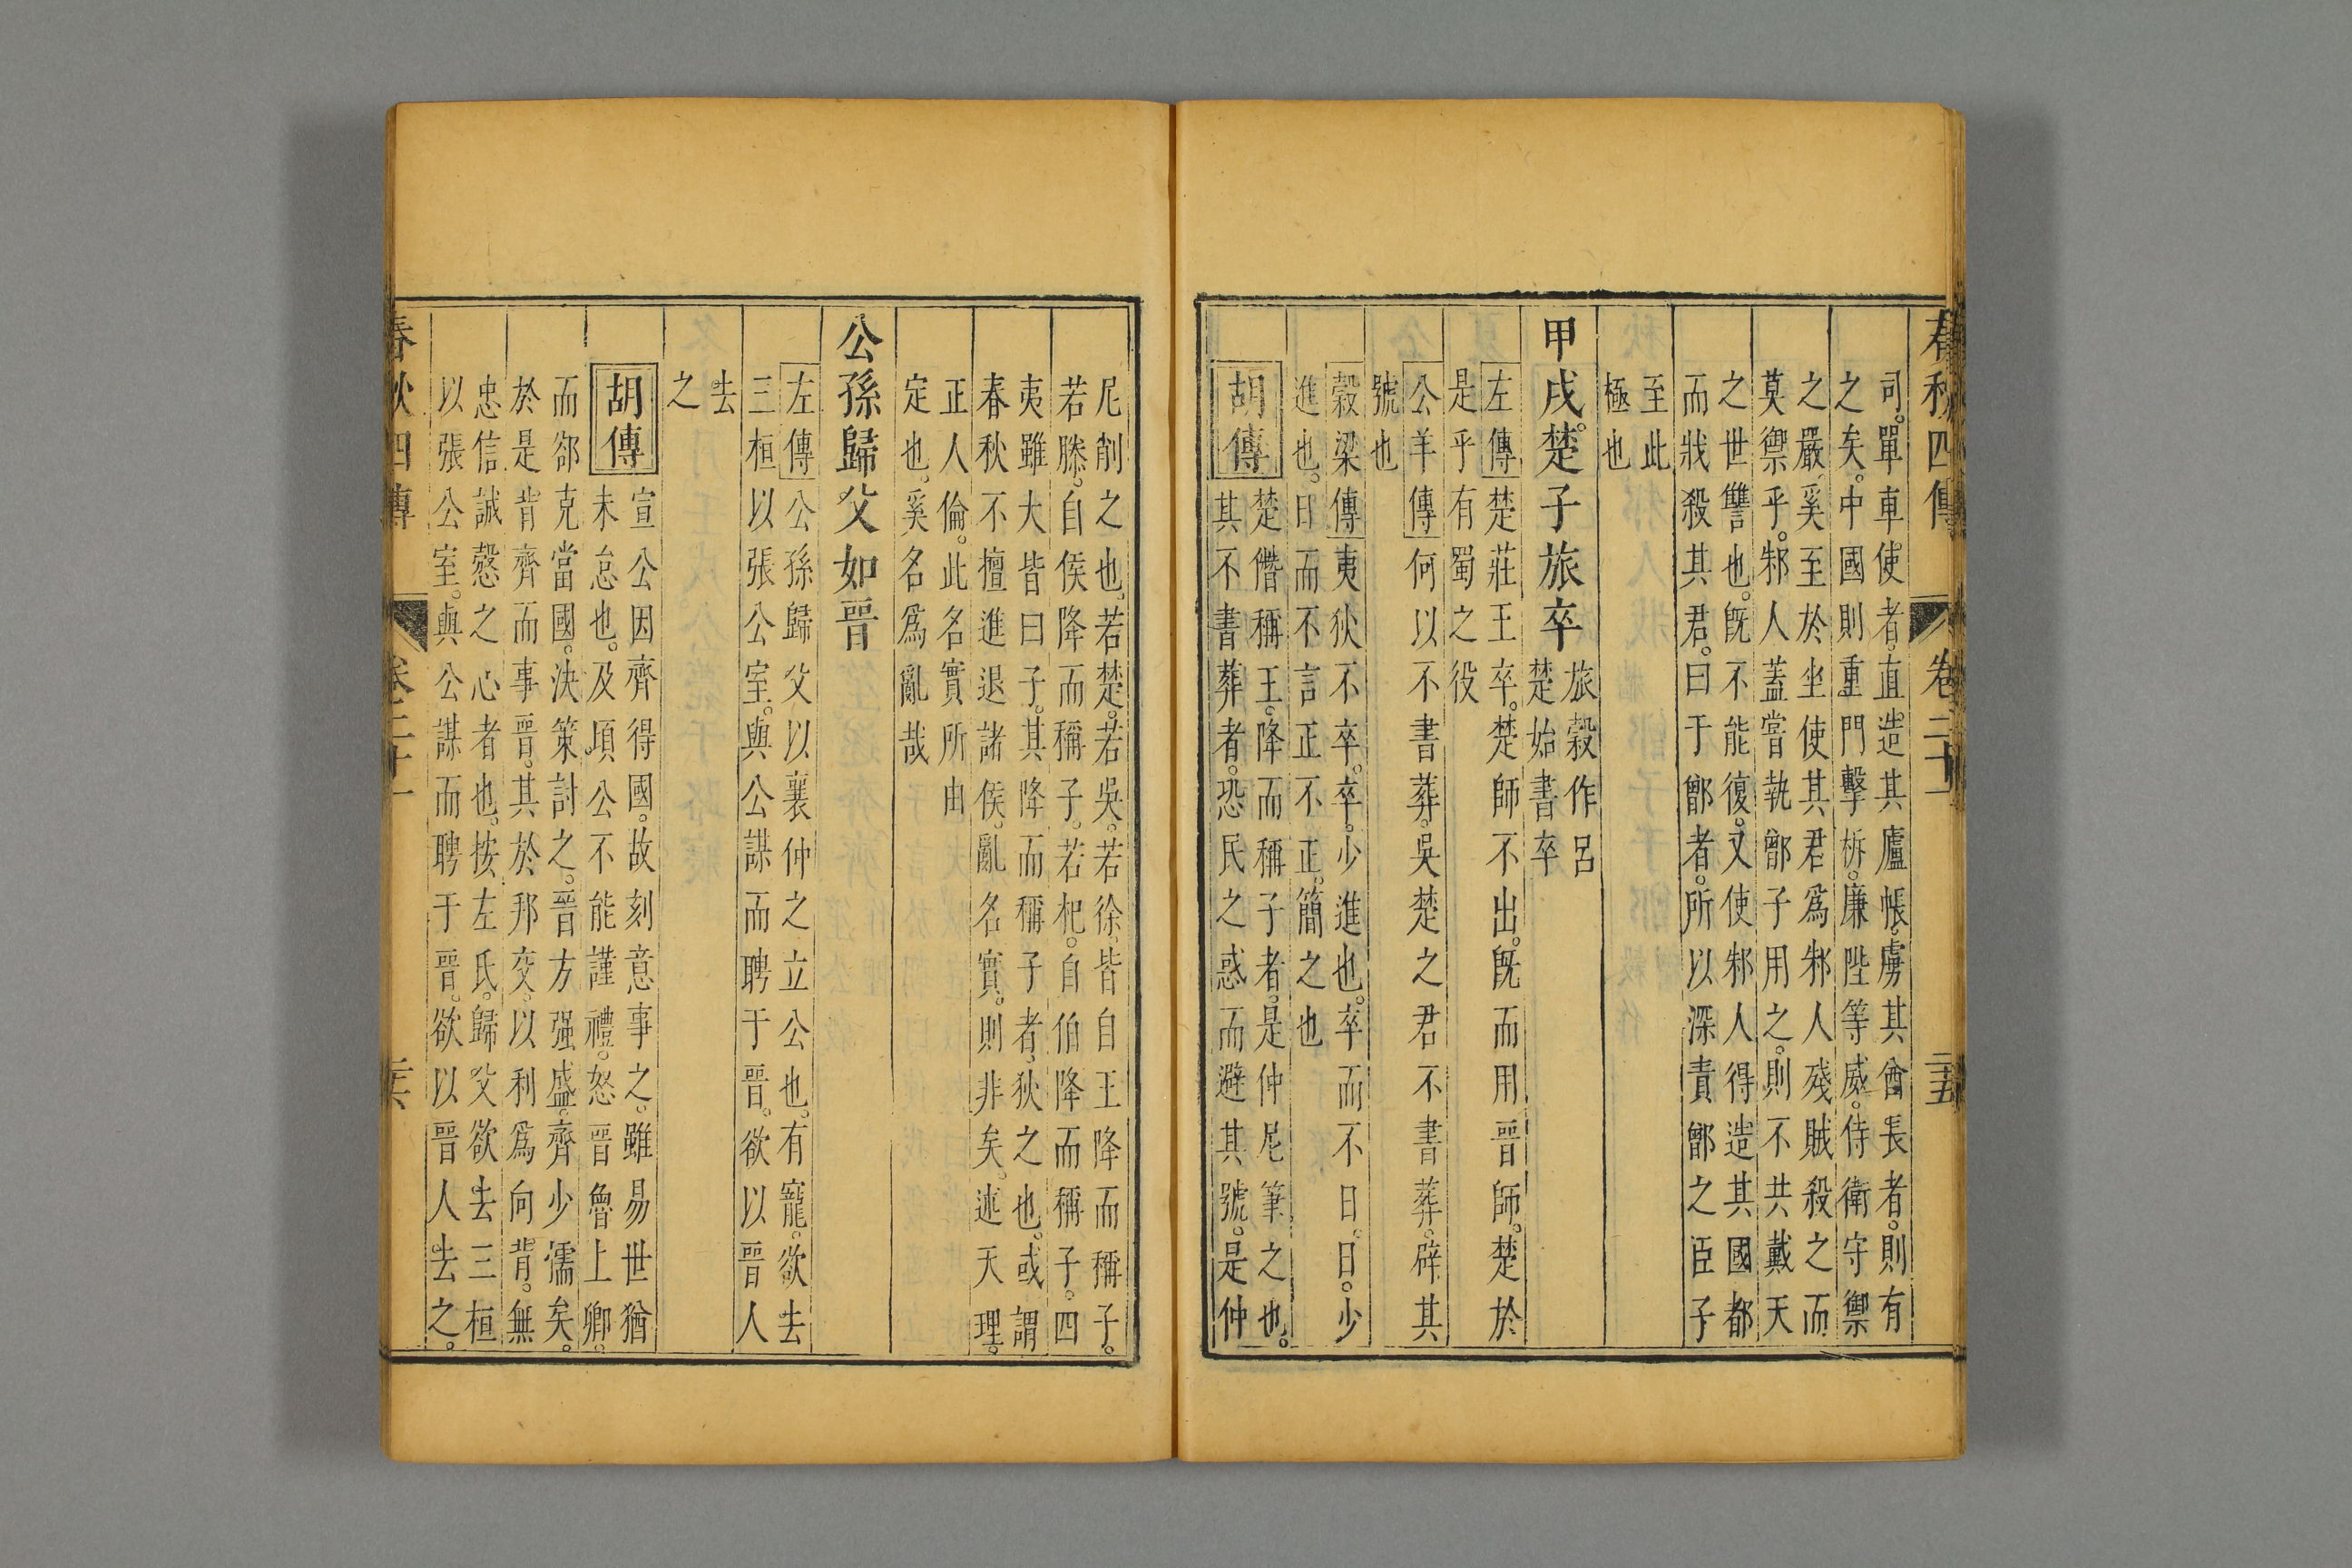 春秋四傳 卷二十一 二十五
司。單車使者。直造其廬帳。虜其酋長者。則有
之矣。中國則重門擊柝。廉陛等威。侍衛守禦
之嚴。奚至於坐使其君爲邾人殘賊殺之而
莫禦乎。邾人蓋嘗執鄫子用之。則不共戴天
之世讐也。旣不能復。又使邾人得造其國都
而戕殺其君。曰于鄫者。所以深責鄫之臣子
至此
極也
甲戌。楚子旅卒
旅穀作呂
楚始書卒
左傳楚莊王卒。楚師不出。旣而用晉師。楚於
是乎有蜀之役
公羊傳何以不書葬。吳楚之君不書葬。辟其
號也
穀梁傳夷狄不卒。卒。少進也。卒而不日。日。少
進也。日而不言正不正。簡之也
胡傳
楚僭稱王。降而稱子者。是仲尼筆之也。
其不書葬者。恐民之惑而避其號。是仲
尼削之也。若楚。若吳。若徐。皆自王降而稱子。
若滕。自侯降而稱子。若杞。自伯降而稱子。四
夷雖大皆曰子。其降而稱子者。狄之也。或謂
春秋不擅進退諸侯。亂名實。則非矣。述天理。
正人倫。此名實所由
定也。奚名爲亂哉
公孫歸父如晉
左傳公孫歸父以襄仲之立公也。有寵。欲去
三桓以張公室。與公謀而聘于晉。欲以晉人
去
之
胡傳
宣公因齊得國。故刻意事之。雖易世猶
未怠也。及頃公不能謹禮。怒晉魯上卿。
而郤克當國。決策討之。晉方强盛。齊少懦矣。
於是背齊而事晉。其於邦交。以利爲向背。無
忠信誠慤之心者也。按左氏。歸父欲去三桓
以張公室。與公謀而聘于晉。欲以晉人去之。
春秋四傳 卷二十一 二十六